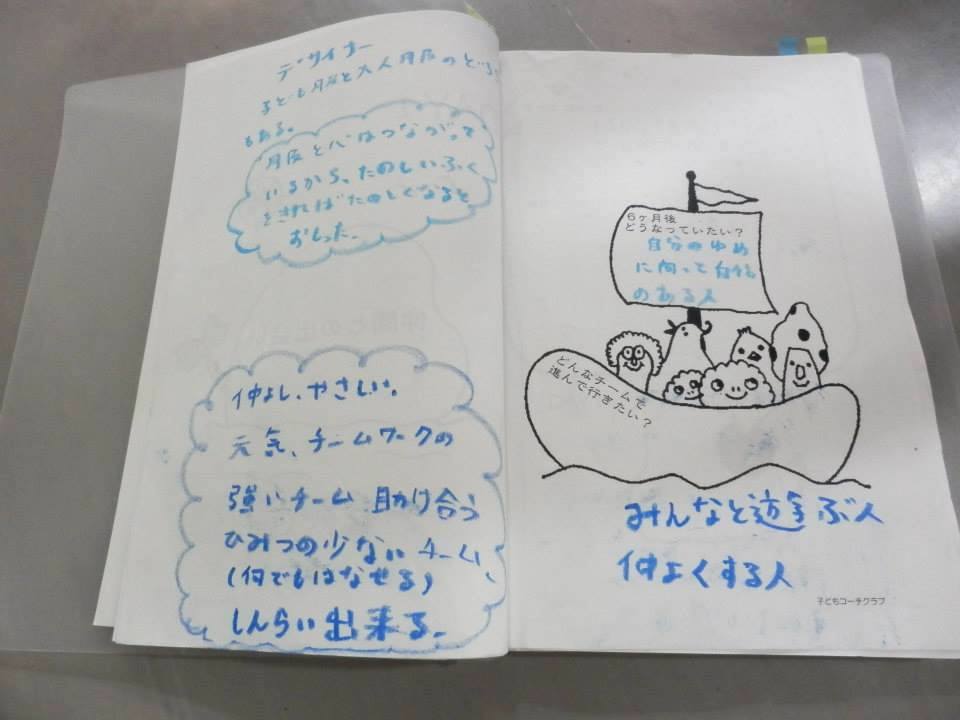 デサイナー
子ども服と大人服の
もある。
服と心はつながって
いるから、たのしいふく
をきればたのしくなると
おもった。
仲よし、やさしい。
元気、チームワークの
強いチーム 助け合う
ひみつの少ないチーム、
(何でもはなせる)
しんらい出来る。
6ヶ月後
どうなっていたい?
自分のゆめ
に向って自信
のある人
どんなチームで
進んで行きたい?
みんなと遊ぶ人
仲よくする人
子どもコーチクラブ